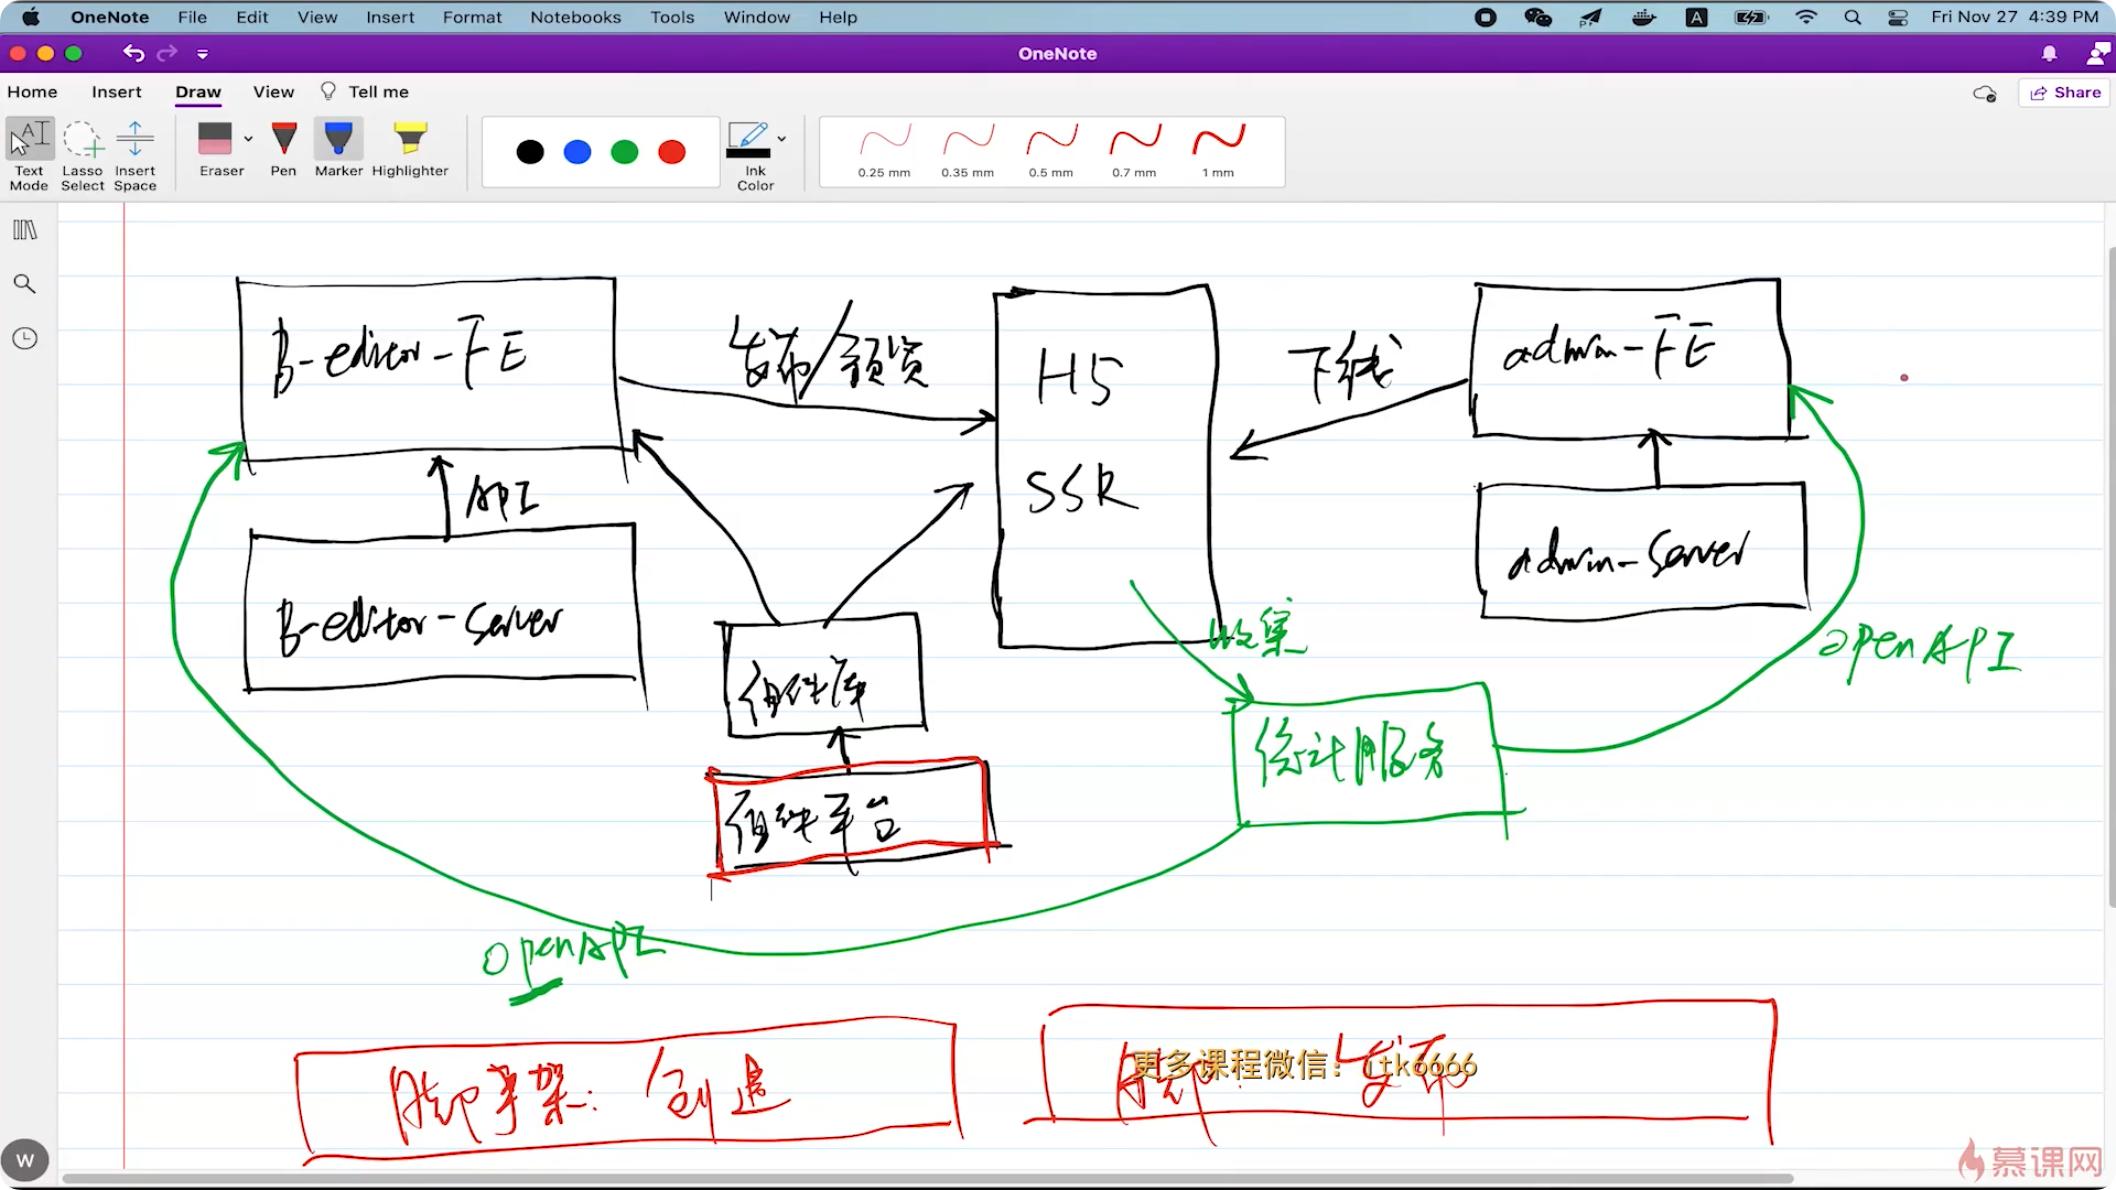 OneNote File Edit View Insert Format Notebooks Tools Window Help A Fri Nov 27 4:39 PM
OneNote
Home Insert Draw View Tell me Share
Text Mode
Lasso Select
Insert Space
Eraser
Pen
Marker
Highlighter
Ink Color
0.25 mm
0.35 mm
0.5 mm
0.7 mm
1 mm
B-editor-FE
发布/预览
H5
SSR
下线
admin-FE
API
B-editor-server
admin-server
收集
openAPI
组件库
统计服务
组件平台
openAPI
脚手架: 创建
发布
更多课程微信: itk6666
W
慕课网